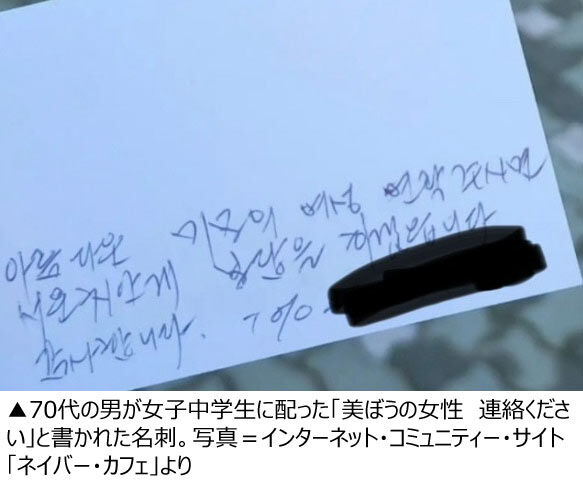 아름다운 미모의 여성 연락주시면
서운치안게 용돈을
감사합니다. 010-
▲70代の男が女子中学生に配った「美ぼうの女性　連絡くださ
い」と書かれた名刺。写真＝インターネット・コミュニティー・サイト
「ネイバー・カフェ」より